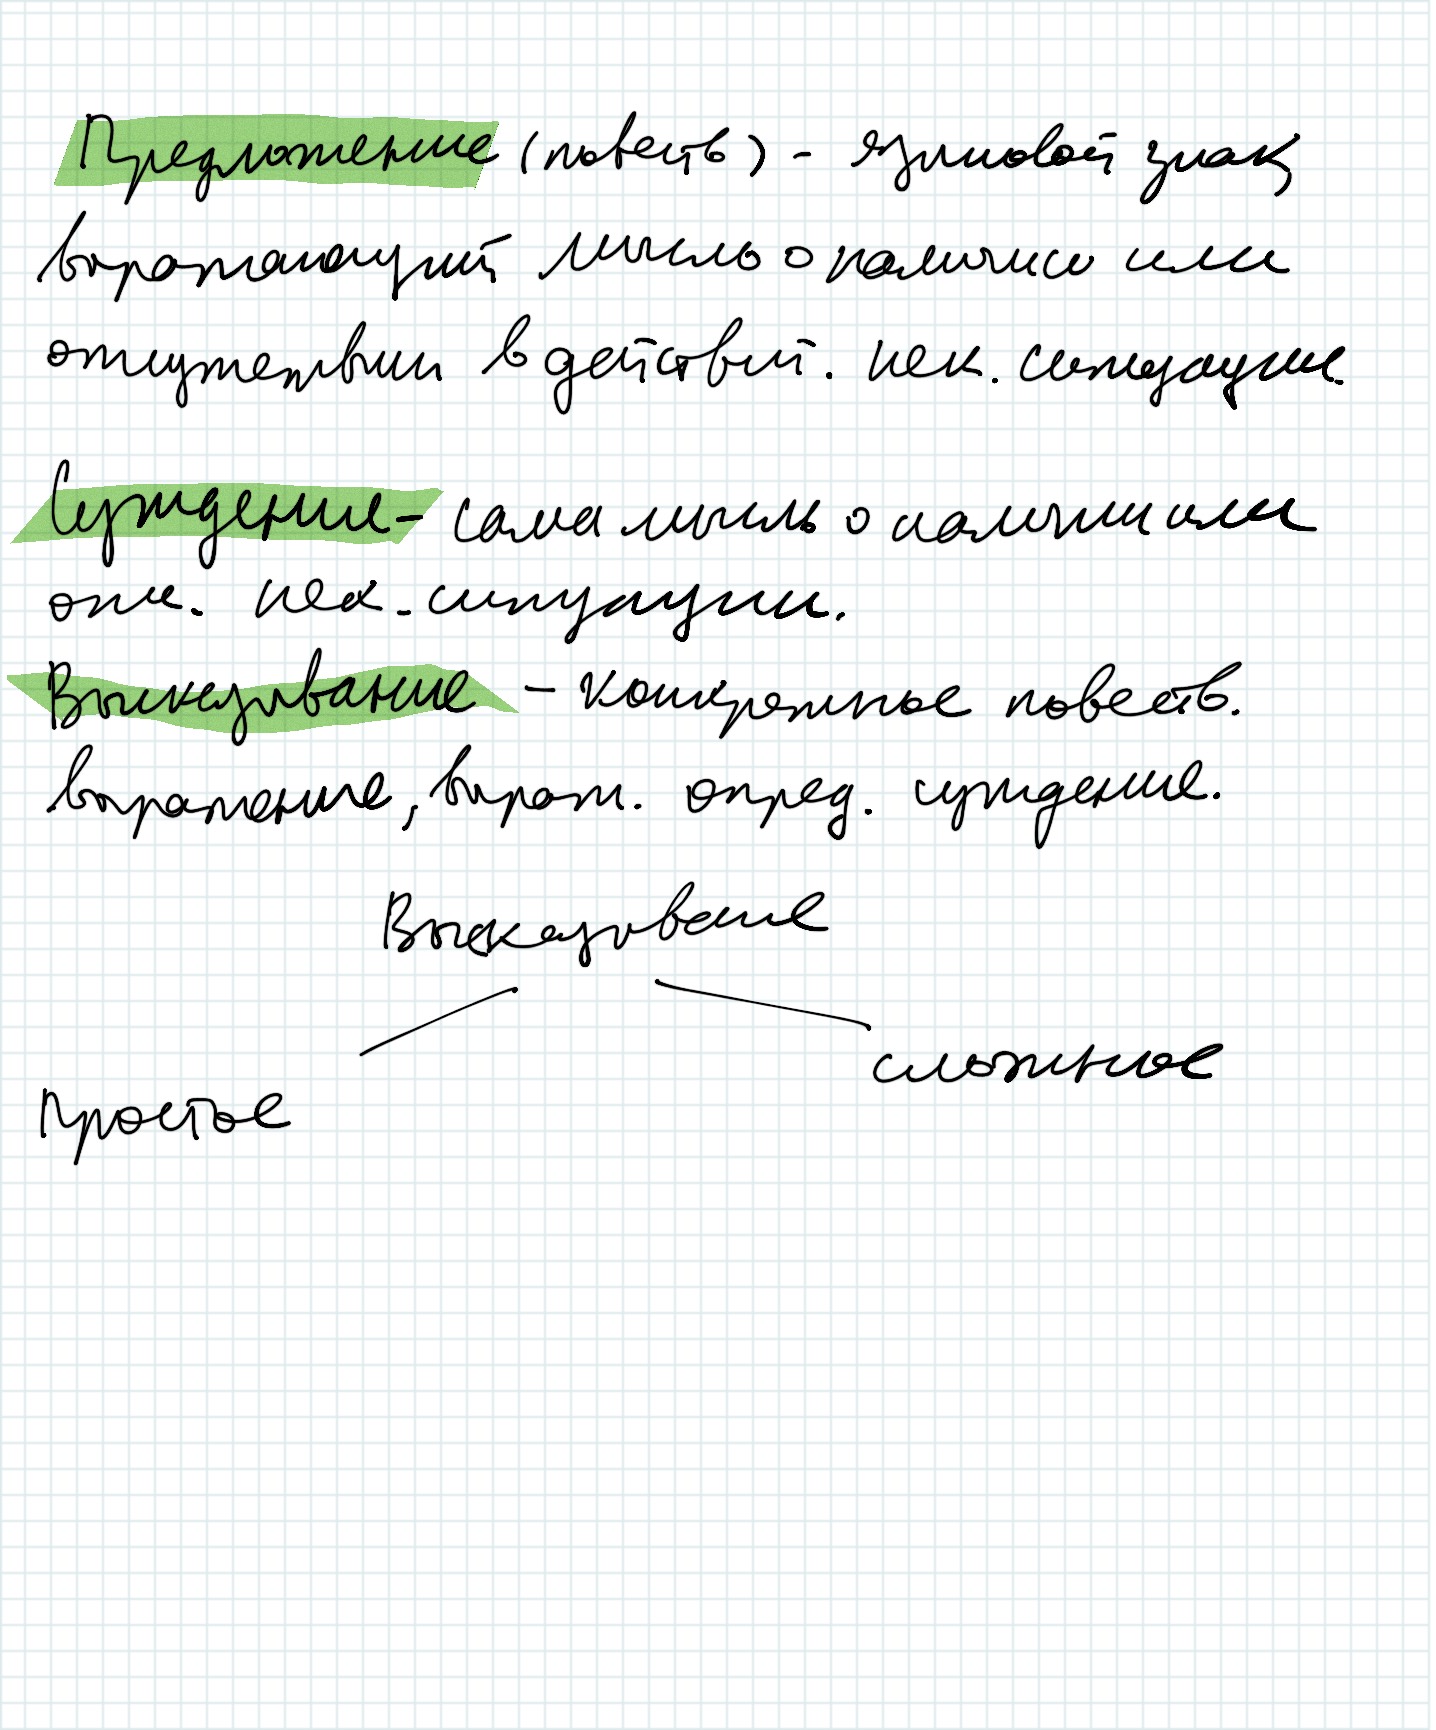 Предложение (повеств) - языковой знак,
выражающий мысль о наличии или
отсутствии в действит. нек. ситуации.
Суждение - сама мысль о наличии или
отс. нек. ситуации.
Высказывание - конкретное повеств.
выражение, выраж. опред. суждение.
Высказывание
сложное
Простое